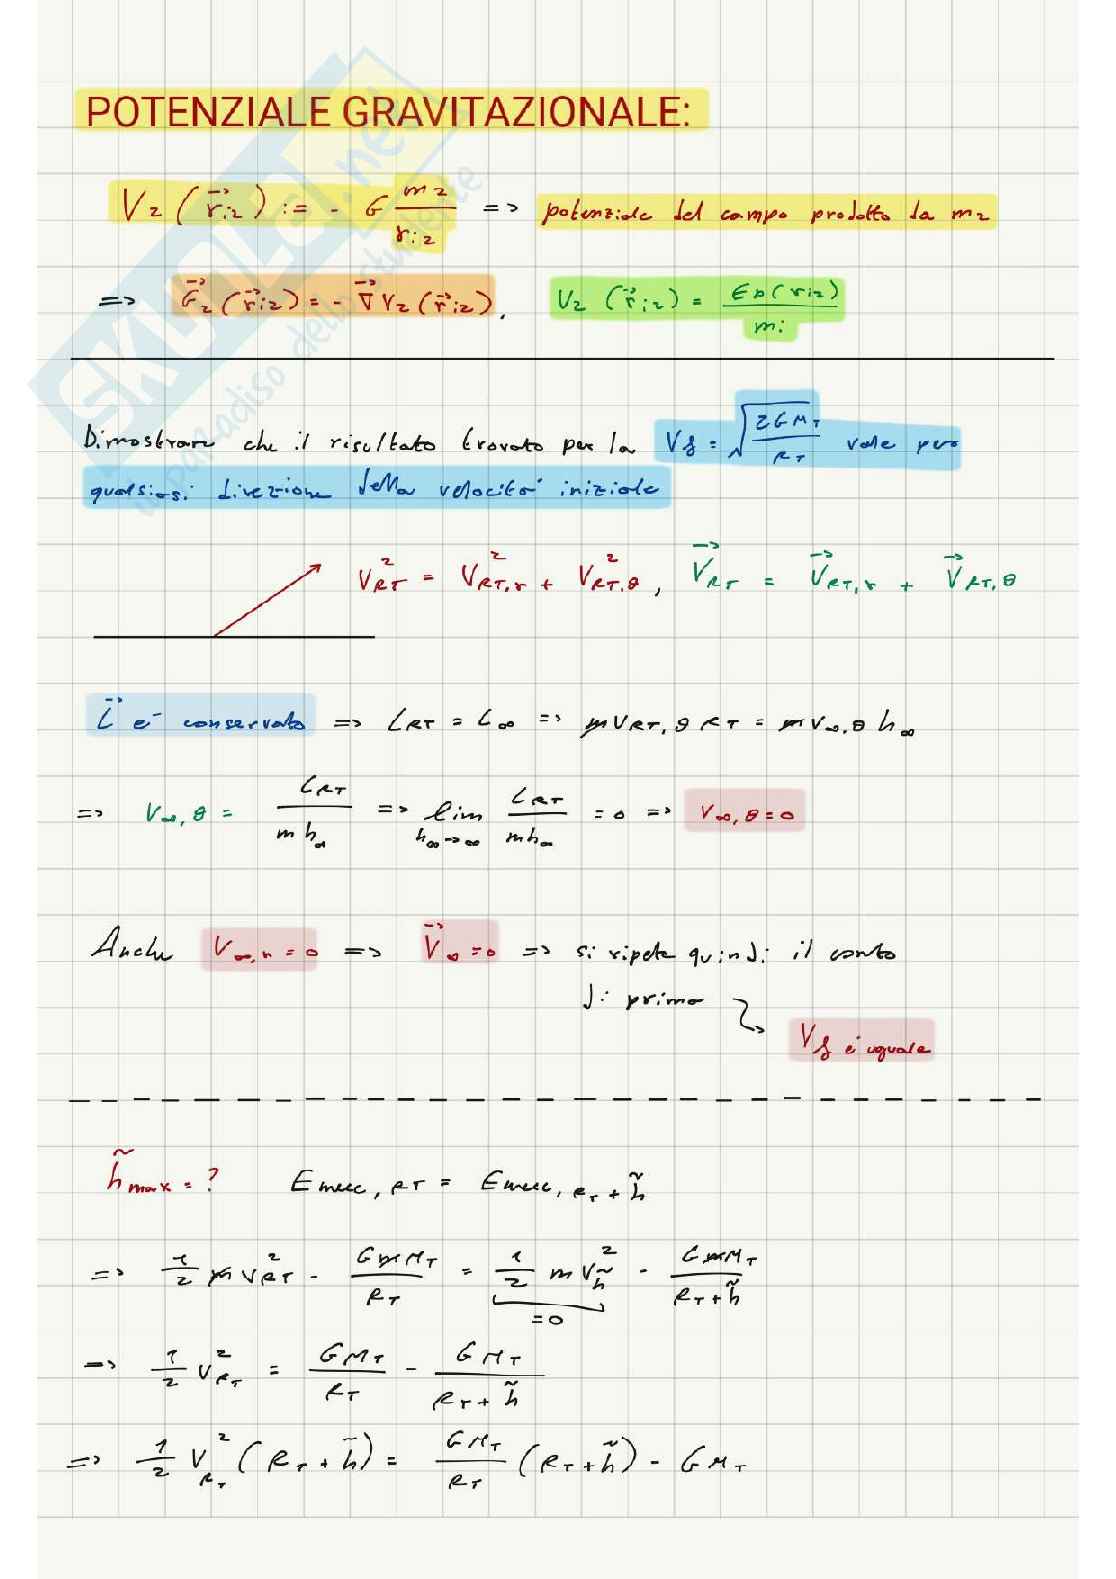 POTENZIALE GRAVITAZIONALE:
V₂ (r⃗ᵢ₂) := - G m₂/rᵢ₂ => potenziale del campo prodotto da m₂
=> G⃗₂ (r⃗ᵢ₂) = - ∇⃗ V₂ (r⃗ᵢ₂), V₂ (r⃗ᵢ₂) = Ep(rᵢ₂)/mᵢ
Dimostrare che il risultato trovato per la Vf = √(2GM_T/R_T) vale per
qualsiasi direzione della velocità iniziale
V²_RT = V²_RT,r + V²_RT,θ , V⃗_RT = V⃗_RT,r + V⃗_RT,θ
L⃗ è conservato => L_RT = L_∞ => m V_RT,θ R_T = m V_∞,θ h_∞
=> V_∞,θ = L_RT/(m h_∞) => lim h_∞→∞ L_RT/(m h_∞) = 0 => V_∞,θ = 0
Anche V_∞,r = 0 => V⃗_∞ = 0 => si ripete quindi il conto
di prima
Vf è uguale
h̃_max = ? E_mecc,RT = E_mecc,R_T + h̃
=> 1/2 m V²_RT - G m M_T/R_T = 1/2 m V²_h̃ - G m M_T/(R_T + h̃)
= 0
=> 1/2 V²_R_T = G M_T/R_T - G M_T/(R_T + h̃)
=> 1/2 V²_R_T (R_T + h̃) = G M_T/R_T (R_T + h̃) - G M_T
SKUOLA.net
un paradiso dello studente